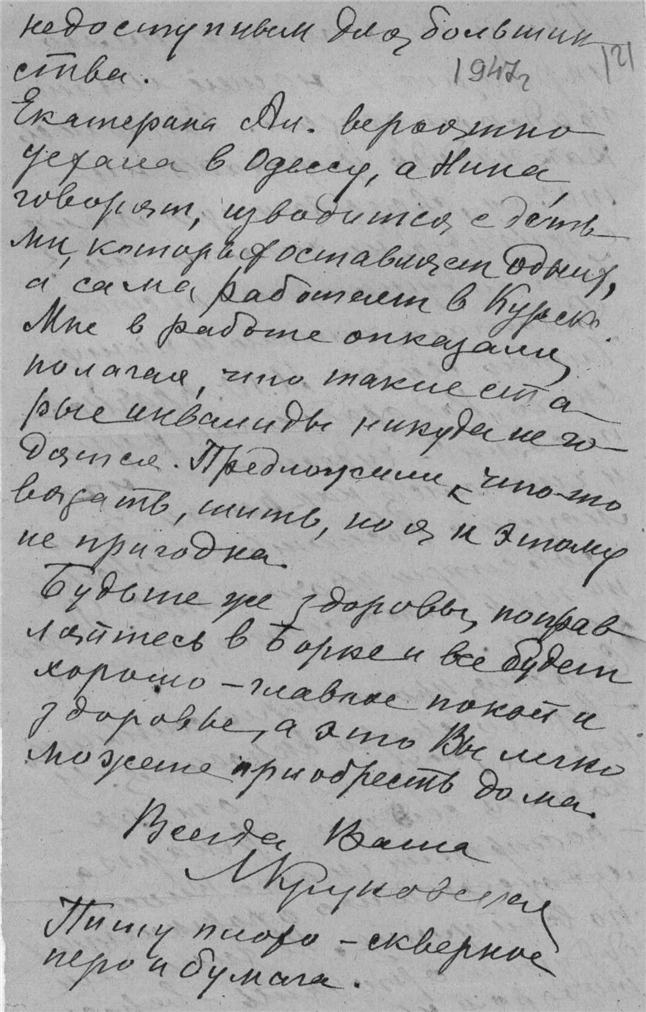 недоступным для большин
ства.
1947г
121
Екатерина Ал. вероятно
уехала в Одессу, а Нина,
говорят, изводится с деть
ми, которых оставляет одних,
а сама работает в Курске.
Мне в работе отказали,
полагая, что такие ста
рые инвалиды никуда не го
дятся. Предложили что-то
вязать, шить, но я к этому
не пригодна.
Будьте же здоровы, поправ
ляйтесь в Борке и все будет
хорошо – главное покой и
здоровье, а это Вы легко
можете приобресть дома.
Всегда Ваша
МКруковская
Пишу плохо – скверное
перо и бумага.